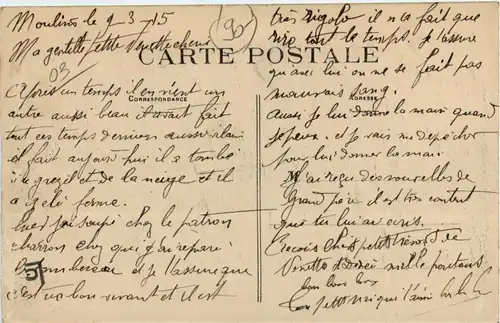 Moulins le 9-3-15
Ma gentille petite Ninette cherie
CARTE POSTALE
Après un temps il en vient un
CORRESPONDANCE
autre aussi beau il avait fait
tout ces temps derniers aussi vilain
et fait aujourd'hui il a tombé
de la gresil et de la neige et il
a gelé ferme.
hier j'ai soupé chez le patron
charron chez qui j'ai reparé
et je t'assure que
c'est un bon vivant et il est
03
90
très rigolo il n'a fait que
rire tout le temps. Je t'assure
qu'avec lui on ne se fait pas
mauvais sang.
ADRESSE
aussi je lui donne la main quand
je peux et je vais me depecher
pour lui donner la main
M'a reçu des nouvelles de
Grand père il est très content
que tu lui ai ecris.
Reçois Chere petite
Ninette adorée mille
bons
Ton petit qui t'aime